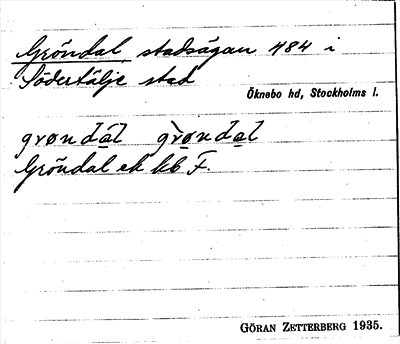 Gröndal stadsägan 484 i
Södertälje stad
Öknebo hd, Stockholms l.
grøndal grøndal
Gröndal ek kb F.
GÖRAN ZETTERBERG 1935.